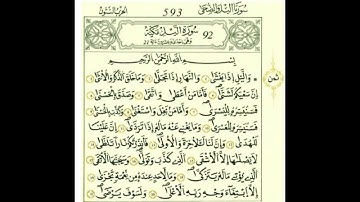 سورتا الليل والضحى
593
الحزب الستون
سورة الليل مكية
92
بسم الله الرحمن الرحيم
ثمن
واليل إذا يغشى والنهار إذا تجلى وما خلق الذكر والأنثى
إن سعيكم لشتى فأما من أعطى واتقى وصدق بالحسنى
فسنيسره لليسرى وأما من بخل واستغنى وكذب بالحسنى
فسنيسره للعسرى وما يغني عنه ماله إذا تردى إن علينا
للهدى وإن لنا للآخرة والأولى فأنذرتكم نارا تلظى
لا يصلاها إلا الأشقى الذي كذب وتولى وسيجنبها الأتقى
الذي يؤتي ماله يتزكى وما لأحد عنده من نعمة تجزى
إلا ابتغاء وجه ربه الأعلى ولسوف يرضى